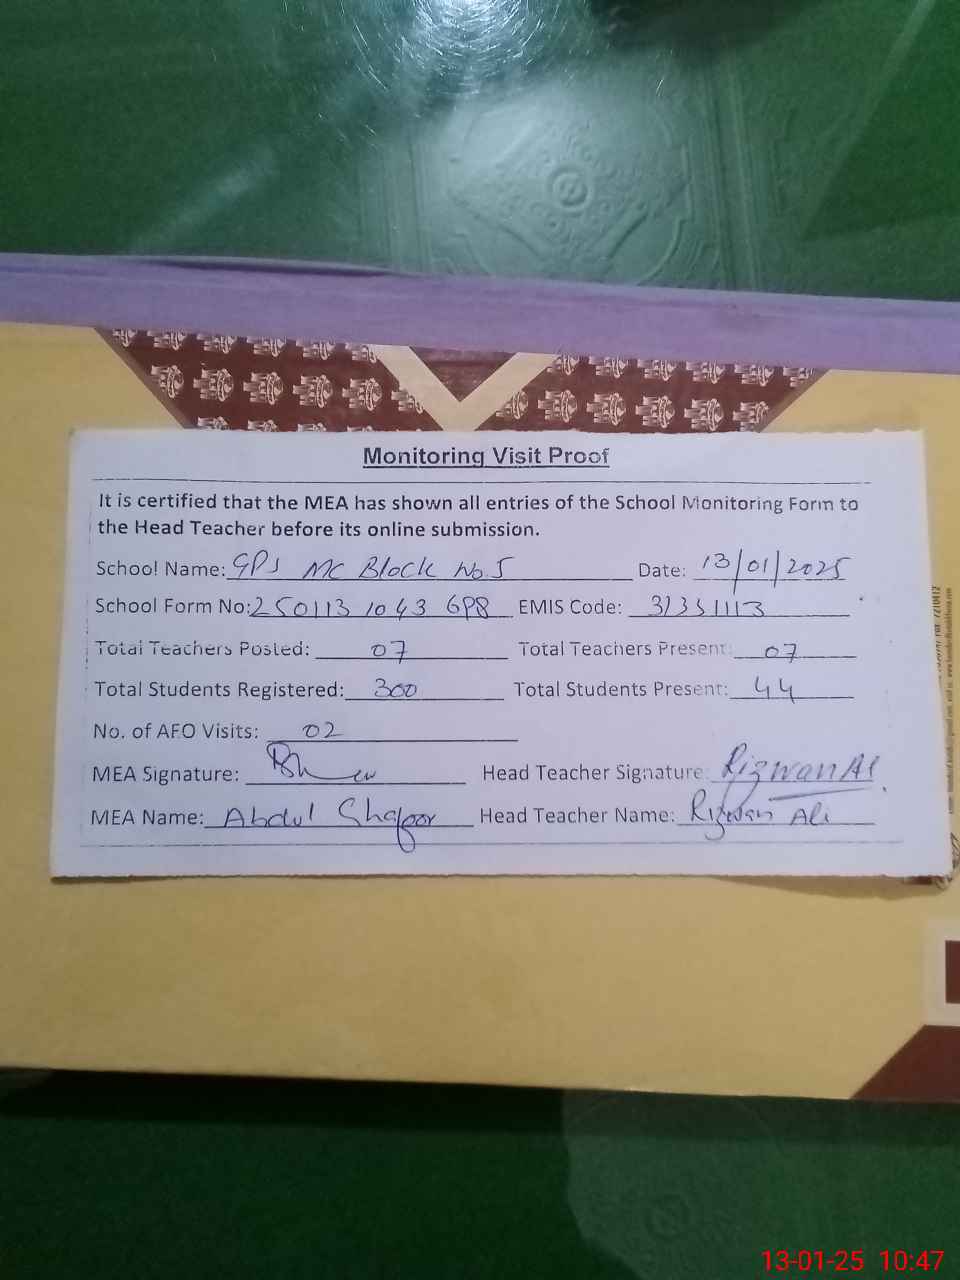 Monitoring Visit Proof
It is certified that the MEA has shown all entries of the School Monitoring Form to
the Head Teacher before its online submission.
School Name: GPS MC Block No.5 Date: 13/01/2025
School Form No: 250113 1043 698 EMIS Code: 31331113
Total Teachers Posted: 07 Total Teachers Present: 07
Total Students Registered: 300 Total Students Present: 44
No. of AEO Visits: 02
MEA Signature: Head Teacher Signature: Rizwan Al
MEA Name: Abdul Ghafoor Head Teacher Name: Rizwan Ali
13-01-25 10:47